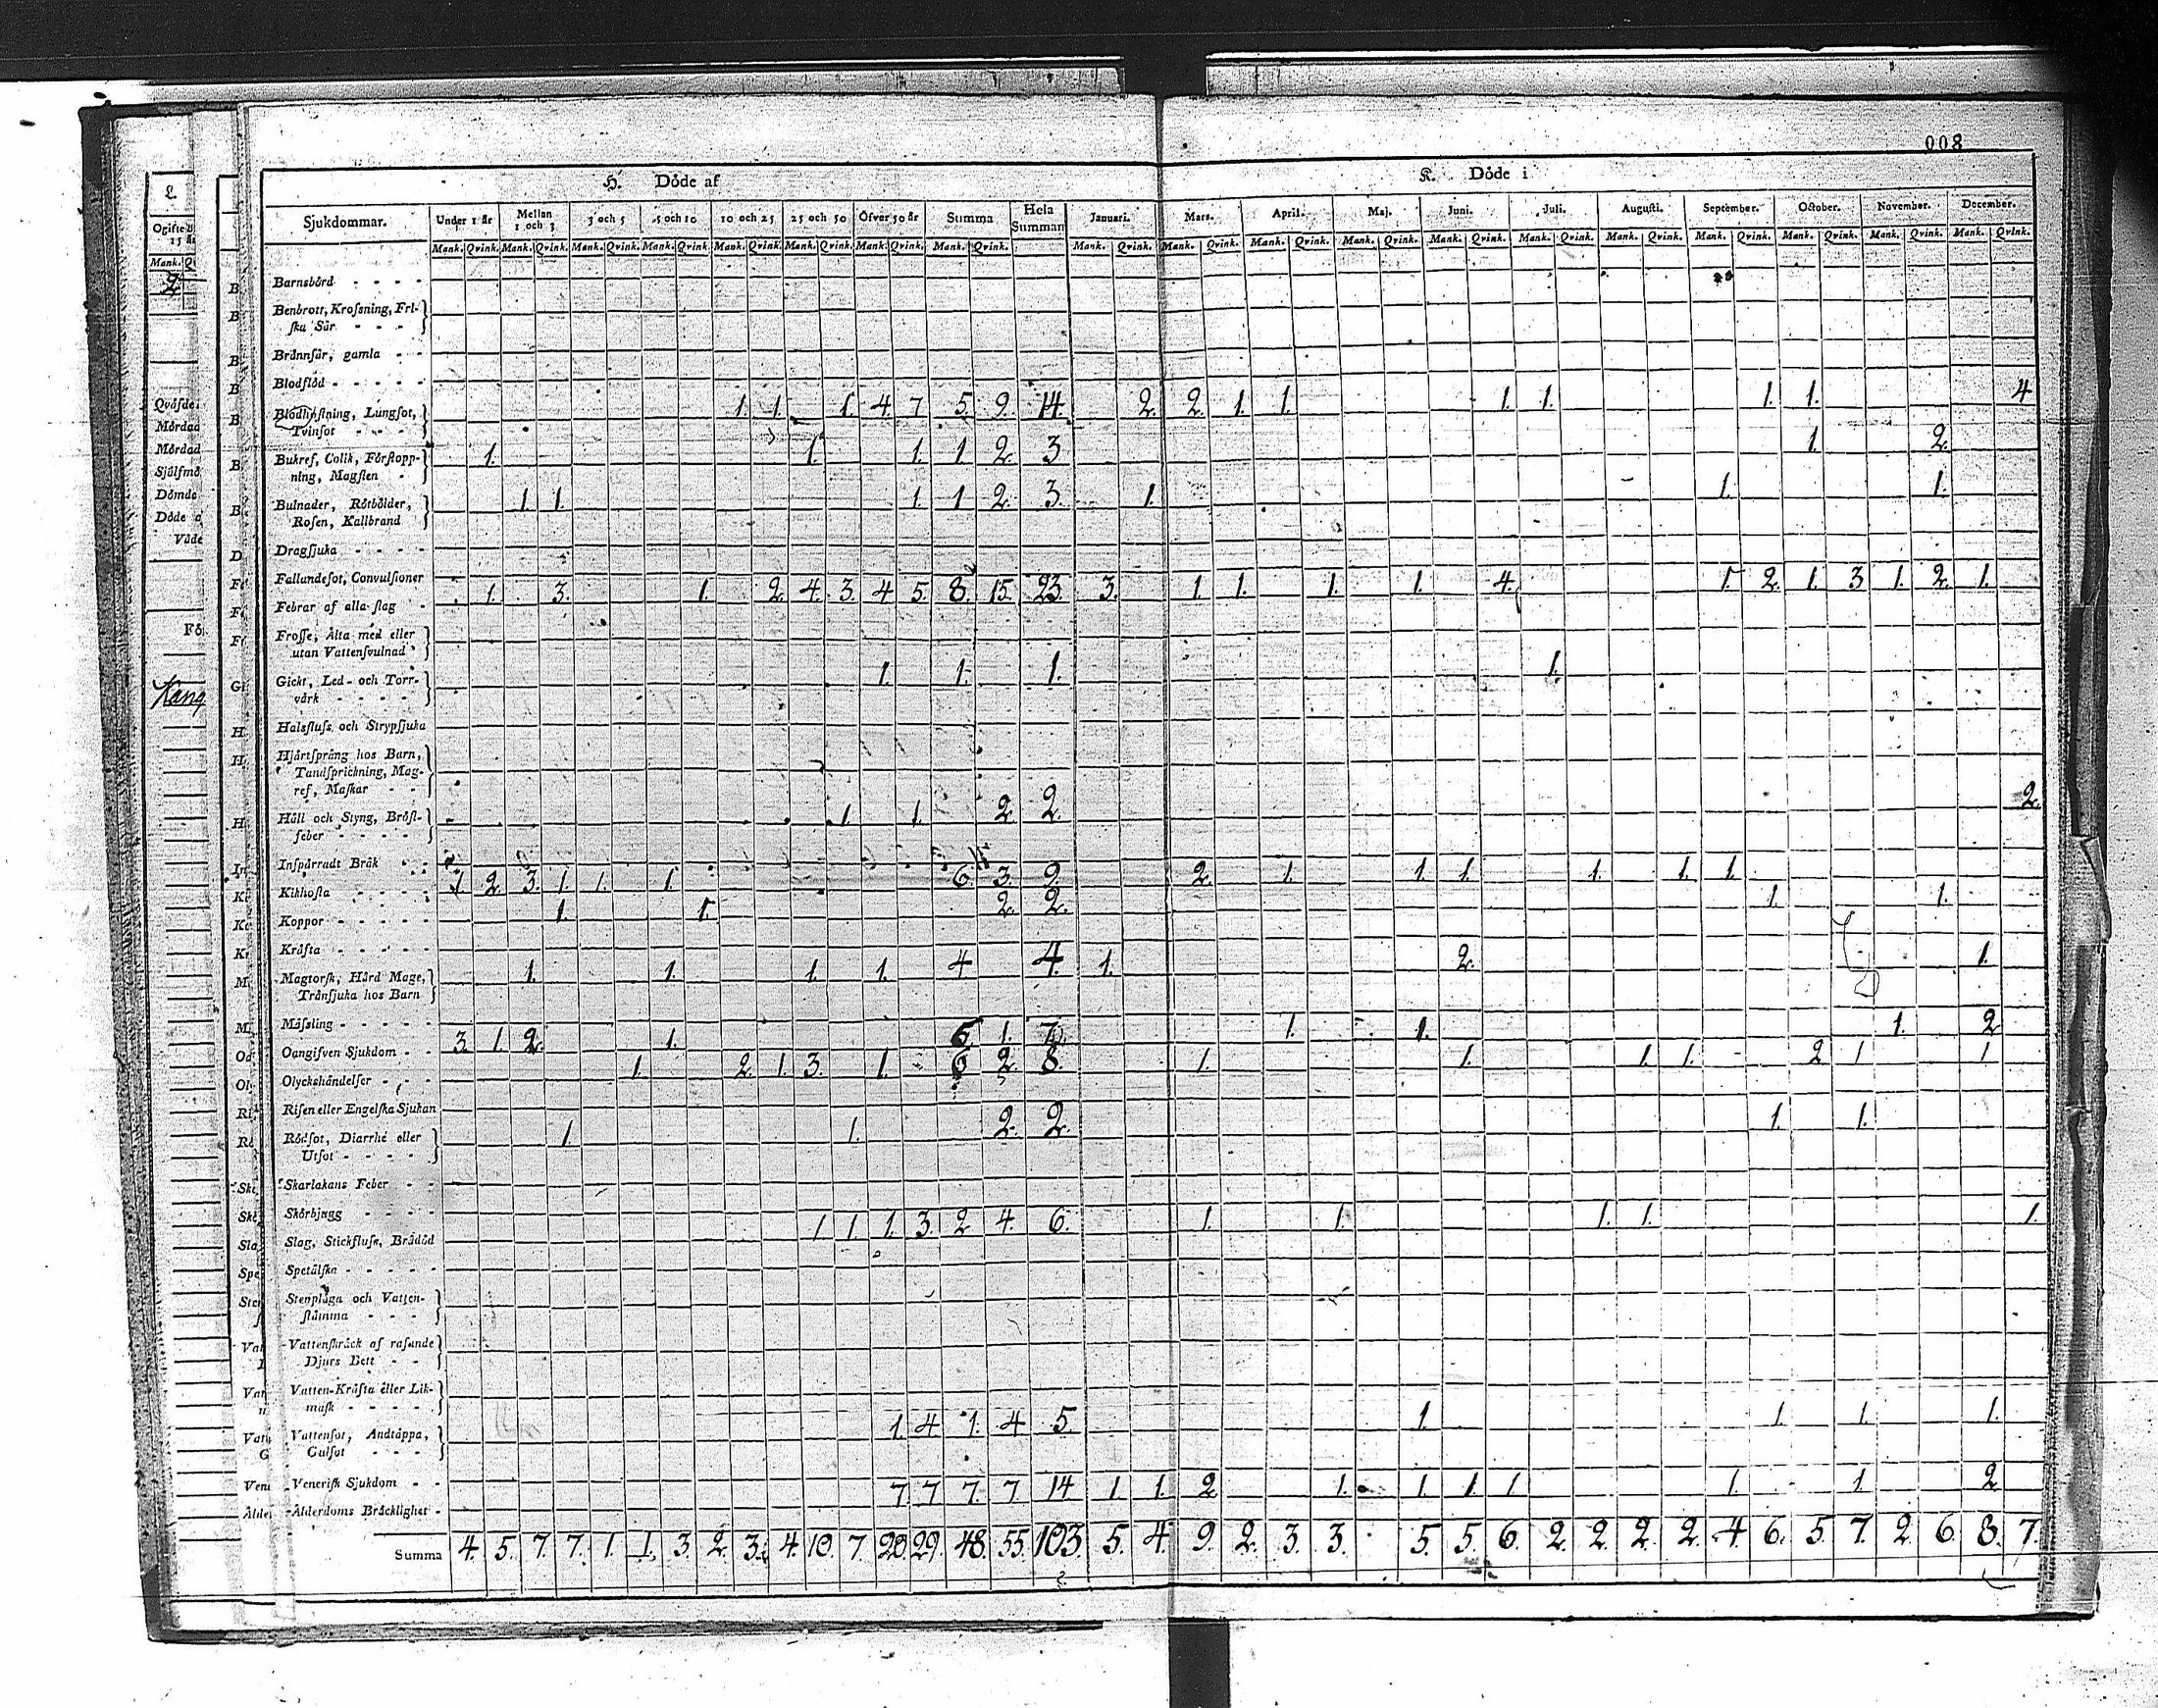 008
H. Döde af
K. Döde i
Sjukdommar. Under 1 år Mellan 1 och 3 3 och 5 5 och 10 10 och 25 25 och 50 Öfver 50 år Summa Hela Summan Januari. Mars. April. Maj. Juni. Juli. Augusti. September. October. November. December.
Mank. Qvink. Mank. Qvink. Mank. Qvink. Mank. Qvink. Mank. Qvink. Mank. Qvink. Mank. Qvink. Mank. Qvink. Mank. Qvink. Mank. Qvink. Mank. Qvink. Mank. Qvink. Mank. Qvink. Mank. Qvink. Mank. Qvink. Mank. Qvink. Mank. Qvink. Mank. Qvink. Mank. Qvink.
Barnsbörd
Benbrott, Krosſning, Fri-
ſka Sår
Brännſår, gamla
Blodflöd
Blodhoſtning, Lungſot, 1. 1. 1. 4. 7 5. 9. 14. 2. 2. 1. 1. 1. 1. 1. 1. 4
Tvinſot
Bukref, Colik, Förſtopp- 1. 1. 1. 1. 2. 3 1. 2.
ning, Magſten
Bulnader, Rötbölder, 1 1. 1. 1 2. 3. 1. 1. 1.
Roſen, Kallbrand
Dragſjuka
Fallandeſot, Convulſioner
Febrar af alla ſlag 1. 3. 1. 2. 4. 3. 4 5. 8. 15. 23 3. 1. 1. 1. 1. 4. 1. 2. 1. 3 1. 2. 1.
Froſſe, Älta med eller
utan Vattenſvulnad
Gickt, Led- och Torr- 1. 1. 1. 1.
värk
Halsfluſs och Strypſjuka
Hjärtſprång hos Barn,
Tandſprickning, Mag-
ref, Maſkar
Håll och Styng, Bröſt- 1. 1. 2. 2. 2.
feber
Inſpärradt Bråk
Kikhoſta 1. 2. 3. 1. 1. 1. 6. 3. 9. 2. 1. 1. 1. 1. 1. 1.
Koppor 1. 1. 2. 2. 1. 1.
Kräfta
Magtorſk, Hård Mage, 1. 1. 1. 1. 4 4. 1. 2. 1.
Tränſjuka hos Barn
Mäſsling
Oangifven Sjukdom 3. 1. 2. 1. 6. 1. 7. 1. 1. 1. 2
Olyckshändelſer 1. 2. 1. 3. 1. 6 2. 8. 1. 1. 1. 1. 2 1 1
Riſen eller Engelſka Sjukan
Rödſot, Diarrhé eller 1. 1. 2. 2. 1. 1.
Utſot
Skarlakans Feber
Skörbjugg
Slag, Stickfluſs, Brådöd 1 1. 1. 3. 2 4. 6. 1. 1. 1. 1. 1.
Spetälſka
Stenplåga och Vatten-
ſtämma
Vattenſkräck af raſande
Djurs Bett
Vatten-Kräfta eller Lik-
maſk
Vattenſot, Andtäppa, 1. 4 1. 4 5. 1. 1. 1. 1.
Gulſot
Veneriſk Sjukdom
Ålderdoms Bräcklighet 7. 7 7. 7 14 1. 1. 2 1. 1. 1. 1 1. 1. 2
Summa 4. 5. 7. 7. 1. 1. 3. 2. 3. 4. 10. 7. 20. 29. 48. 55. 103. 5. 4. 9. 2. 3. 3. 5. 5. 6. 2. 2. 2. 2. 4. 6. 5. 7. 2. 6. 8. 7.